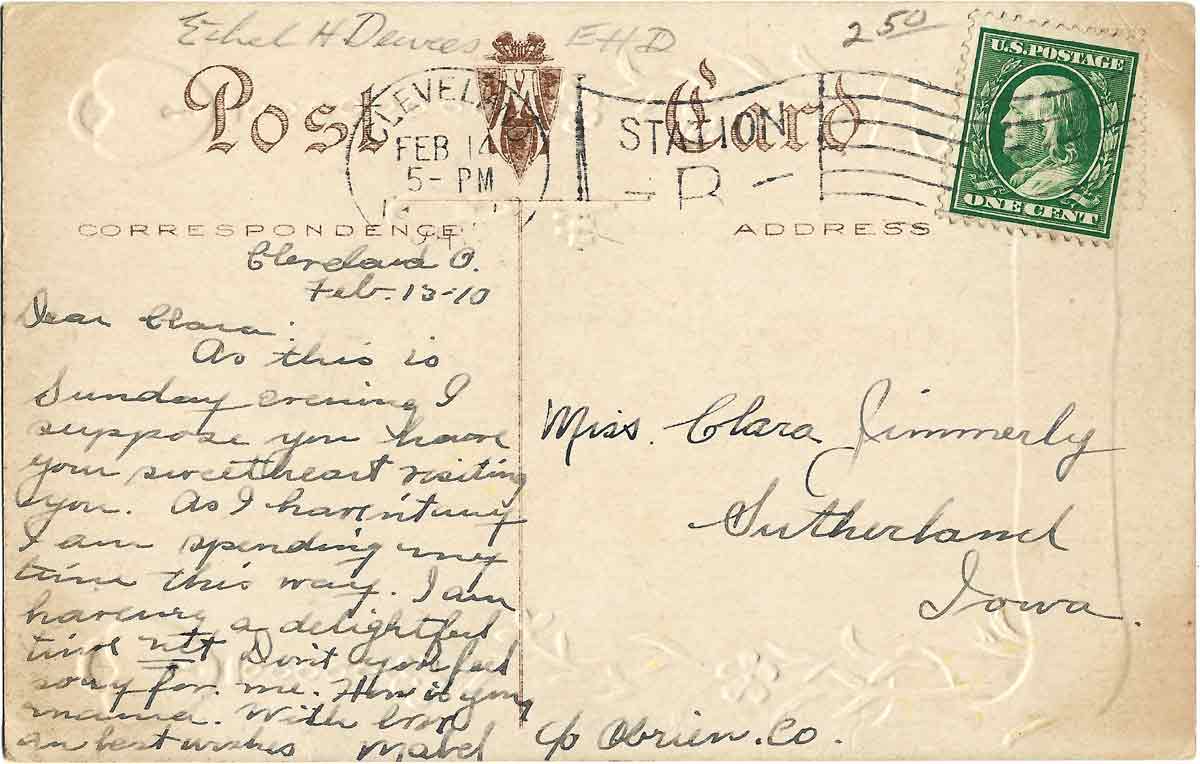 Ethel H Devres EHD
2 50
Post Card
U.S. POSTAGE
ONE CENT
CLEVELAN
FEB 14
5- PM
STATION
B
CORRESPONDENCE
ADDRESS
Cleveland O.
Feb. 13-10
Dear Clara:
As this is
Sunday evening I
suppose you have
your sweetheart visiting
you. As I haven't any
I am spending my
time this way. I am
having a delightful
time not Don't you feel
sorry for me. How is your
mama. With love
an best wishes Mabel
Miss. Clara Zimmerly
Sutherland
Iowa.
c/o Obrien. Co.